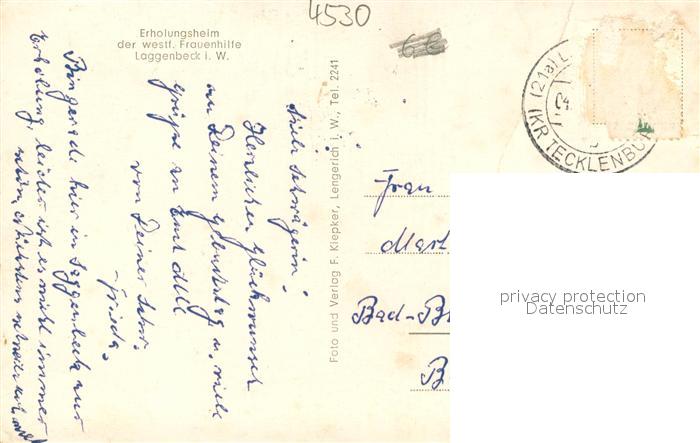 4530
Erholungsheim
der westf. Frauenhilfe
Laggenbeck i. W.
Liebe Schwägerin!
Herzlichen Glückwunsch
zu Deinem Geburtstag u. viele
Grüße an Euch alle
von Deiner Schw.
Frieda.
Bin gerade hier in Laggenbeck zur
Erholung, leider ist es nicht immer
schön,
Foto und Verlag F. Kiepker, Lengerich i. W., Tel. 2241
(21a) L
(KR TECKLENBUR
Frau
Mart
Bad-B
B
privacy protection
Datenschutz